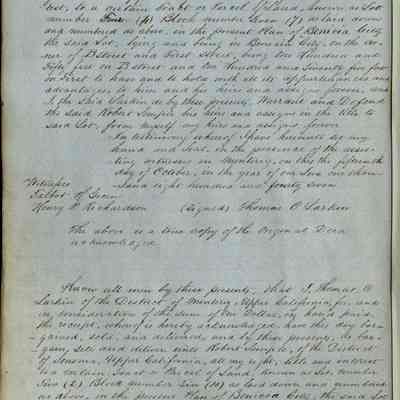 to a certain tract or Parcel of Land, known as Lot
number Four (4) Block number Seven (7) as laid down
and numbered as above, in the present Plan of Benicia City,
the said Lot, lying and being in Benicia City, on the cor-
ner of B Street and First Street, being One Hundred and
Fifty feet on B Street and One Hundred and Twenty five feet
on First to have and to hold with all its appurtenances and
advantages to him and his heirs and assigns forever, and
I, the said Larkin do by these presents, Warrant and Defend
the said Robert Semple his heirs and assigns in the title to
said Lot, from myself my heirs and assigns forever.
In testimony whereof I have hereunto set my
hand and Seal, in the presence of the assis-
ting witnesses in Monterey, on this the fifteenth
day of October, in the year of our Lord one thou-
sand eight hundred and fourty seven
Witnesses
Talbot H. Green
Henry Richardson (Signed) Thomas O Larkin
The above is a true copy of the Original Deed
acknowledged
Know all men by these presents, that I, Thomas O
Larkin of the District of Monterey, Upper California, for and
in consideration of the sum of One Dollar, in hand paid,
the receipt, whereof is hereby acknowledged, have this day bar-
gained, sold, and delivered, and by these presents, do bar-
gain, sell and deliver unto Robert Semple, of the District
of Sonoma, Upper California, all my right, title and interest
to a certain Tract or Parcel of Land, known as Lot number
Block number as laid down and numbered
as above, in the present Plan of Benicia City, the said Lot